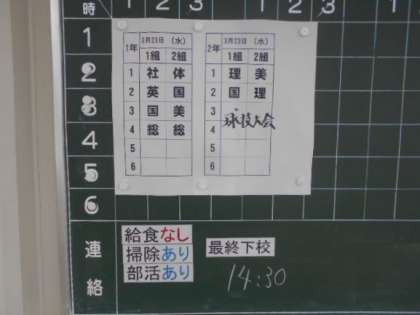 時 1 2 3 1 2 3
1
2
3
4
5
6
1年 3月23日 (水)
1組 2組
1 社 体
2 英 国
3 国 美
4 総 総
5
6
2年 3月23日 (水)
1組 2組
1 理 美
2 国 理
3 球技大会
4
5
6
連絡
給食なし
掃除あり
部活あり
最終下校
14:30